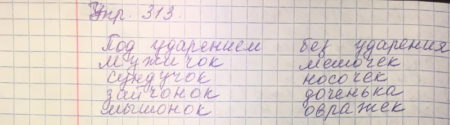 Упр. 313.
Под ударением без ударения
мужичок мешочек
сундучок носочек
зайчонок доченька
мышонок овражек